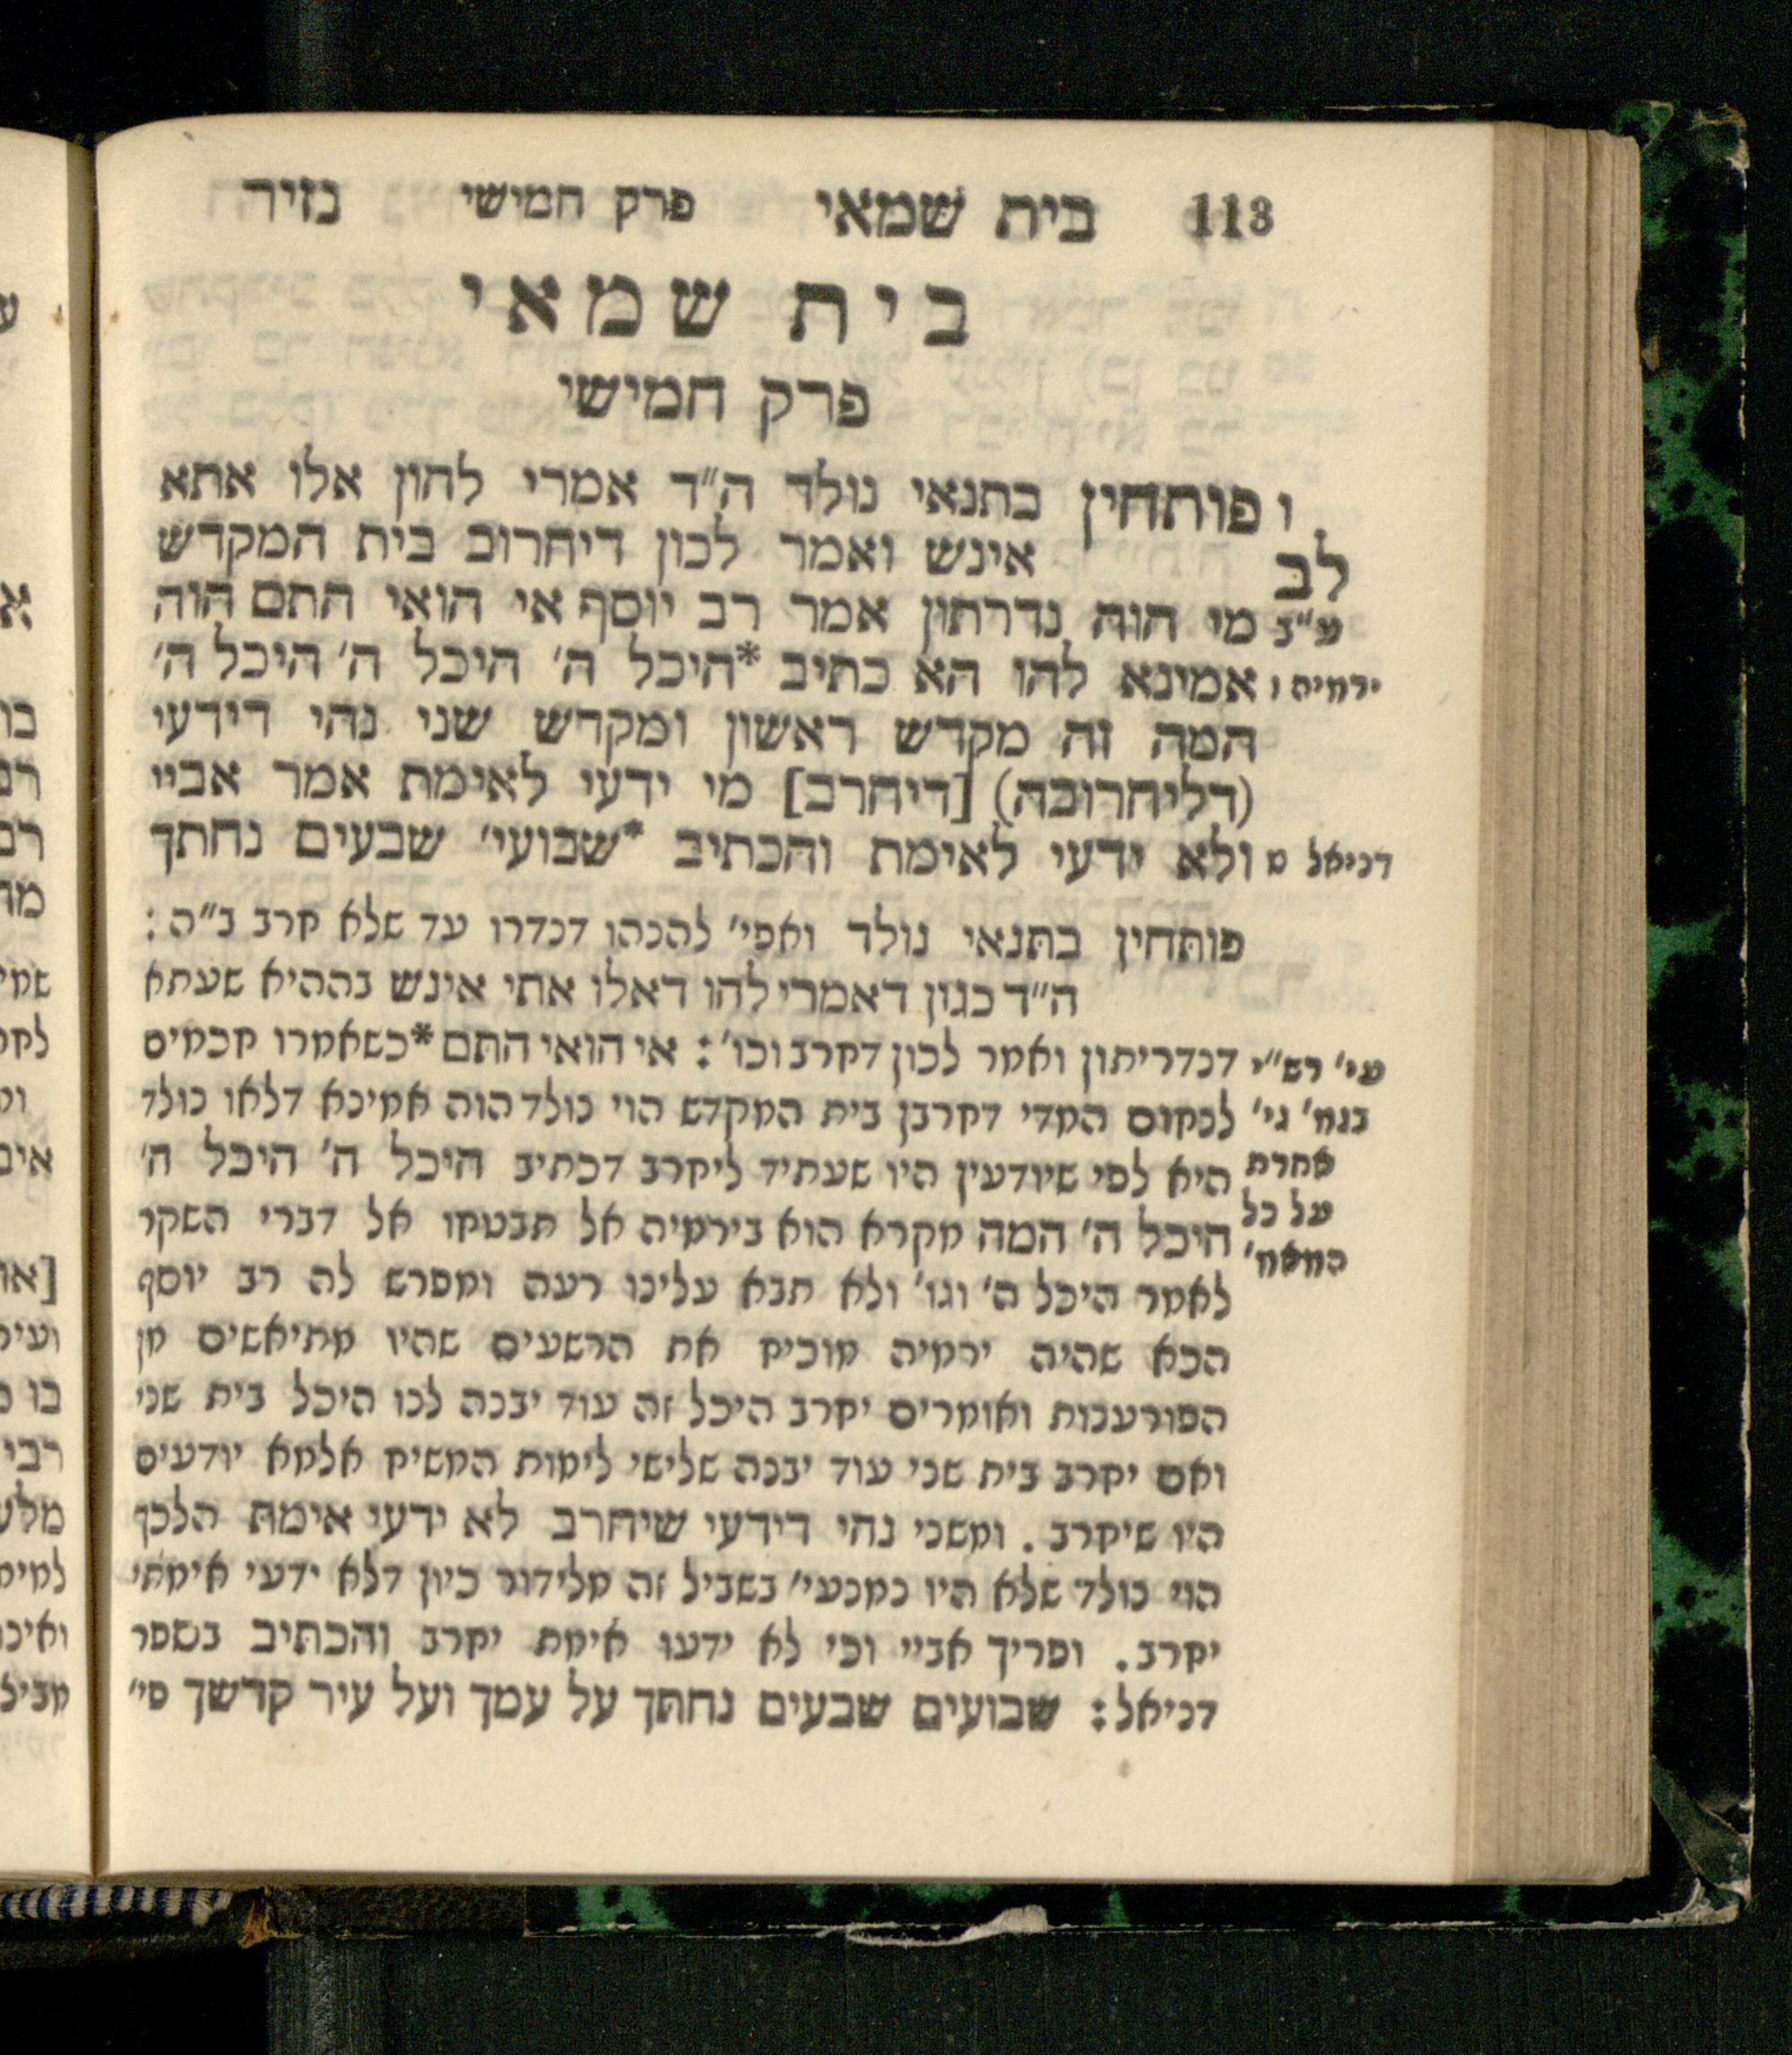 113 בית שמאי פרק חמישי נזיר
בית שמאי
פרק חמישי
ו פותחין בתנאי נולד ה"ד אמרי להון אלו אתא
לב
אינש ואמר לכון דיחרוב בית המקדש
ע"ב מי הוה נדרתון אמר רב יוסף אי הואי התם הוה
ירמיה ז אמינא להו הא כתיב *היכל ה' היכל ה' היכל ה'
המה זה מקדש ראשון ומקדש שני נהי דידעי
(דליחרובה) [דיחרב] מי ידעי לאימת אמר אביי
דניאל ט ולא ידעי לאימת והכתיב *שבועי' שבעים נחתך
פותחין בתנאי נולד ואפי' להנהו דנדרו עד שלא חרב ב"ה :
ה"ד כגון דאמרי להו דאלו אתי אינש בההיא שעתא
עי' רש"י דנדריתון ואמר לכון דחרב וכו' : אי הואי התם *כשאמרו חכמים
בגמ' גי' לבקום המדי דחרבן בית המקדש הוי נולד הוה אמינא דלאו נולד
אחרת היא לפי שיודעין היו שעתיד ליחרב דכתיב היכל ה' היכל ה'
על כל היכל ה' המה מקרא הוא בירמיה אל תבטחו אל דברי השקר
המאמ'
לאמר היכל ה' וגו' ולא תבא עלינו רעה ומפרש לה רב יוסף
הכא שהיה ירמיה מוכיח את הרשעים שהיו מתיאשים מן
הפורענות ואומרים יחרב היכל זה עוד יבנה לנו היכל בית שני
ואם יחרב בית שני עוד יבנה שלישי לימות המשיח אלמא יודעים
היו שיחרב . ומשני נהי דידעי שיחרב לא ידעי אימת הלכך
הוי נולד שלא היו נמנעי' בשביל זה מלידור כיון דלא ידעי אימתי
יחרב . ופריך אביי וכי לא ידעו אימת יחרב והכתיב בספר
דניאל : שבועים שבעים נחתך על עמך ועל עיר קדשך פי'